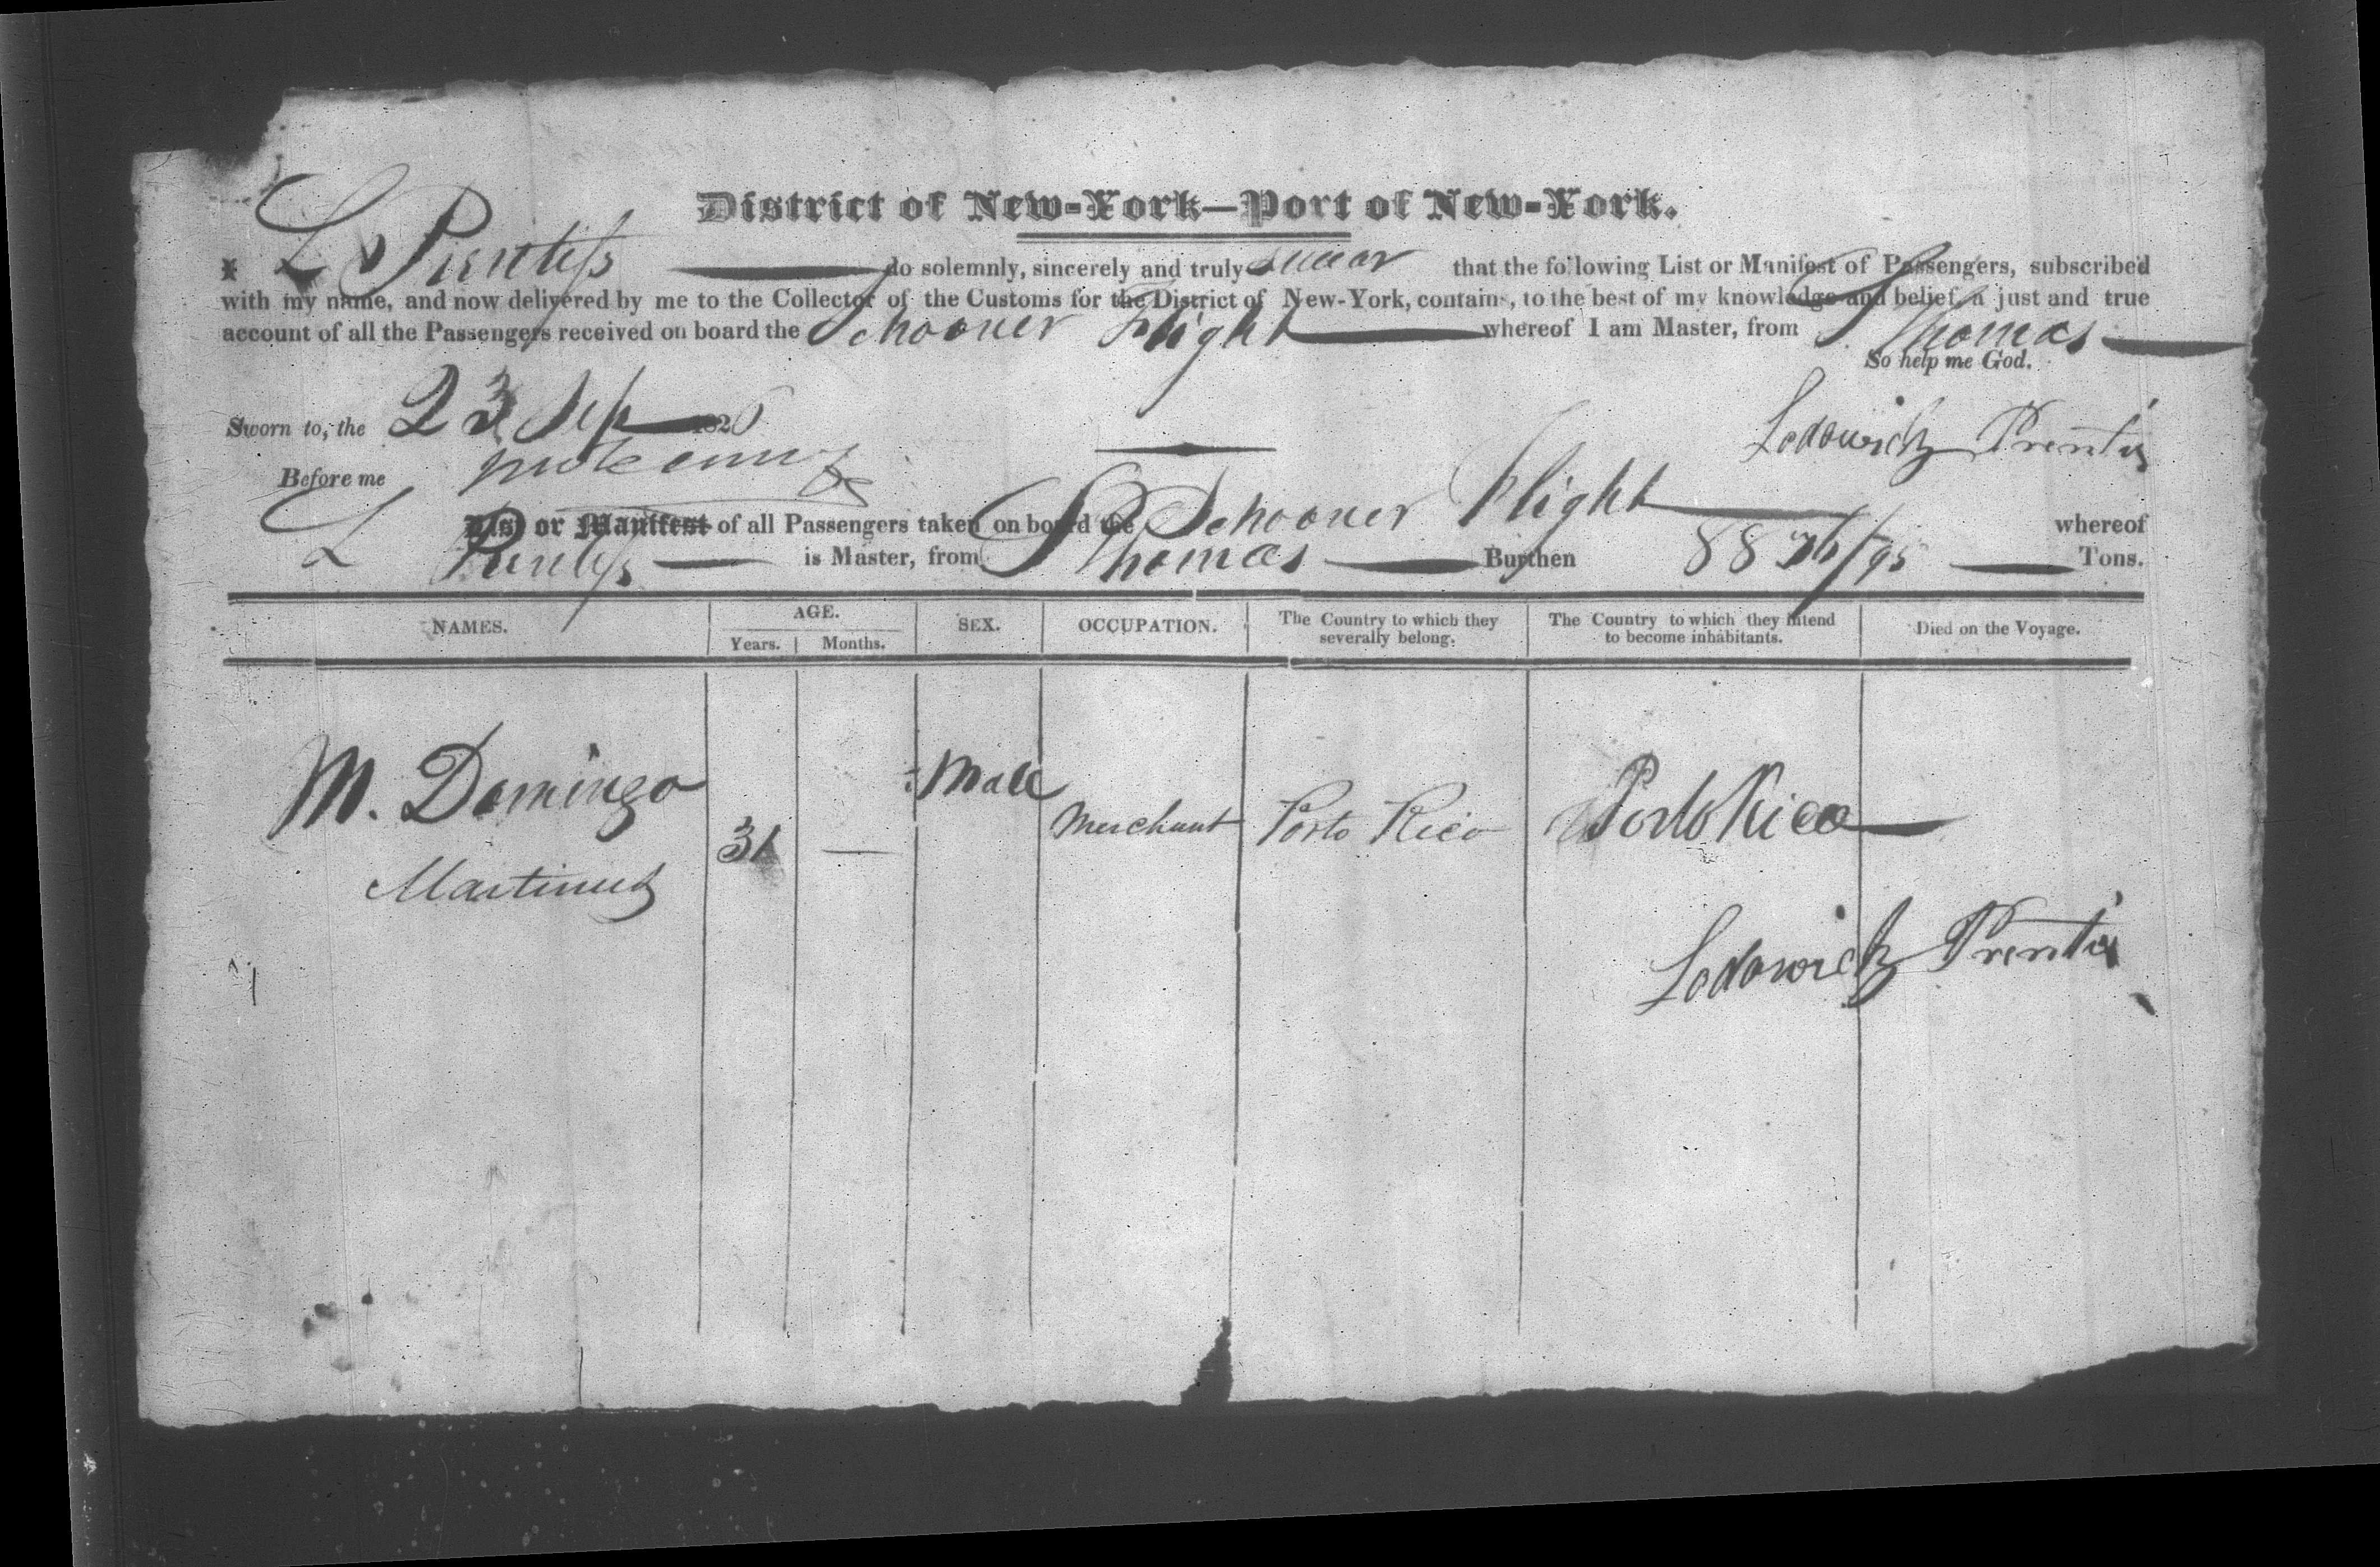 District of New-York—Port of New-York.
I L Prentiss do solemnly, sincerely and truly swear that the following List or Manifest of Passengers, subscribed
with my name, and now delivered by me to the Collector of the Customs for the District of New-York, contains, to the best of my knowledge and belief, a just and true
account of all the Passengers received on board the Schooner Flight whereof I am Master, from St Thomas
So help me God.
Sworn to, the 23 Sep 1826
Lodowick Prentis
Before me
List or Manifest of all Passengers taken on board the Schooner Flight whereof
L Prentiss is Master, from St Thomas Burthen 88 /95 Tons.
NAMES. AGE. SEX. OCCUPATION. The Country to which they severally belong. The Country to which they intend to become inhabitants. Died on the Voyage.
Years. Months.
M. Domingo Male
31 — Merchant Porto Rico Porto Rico
Martinez
Lodowick Prentis